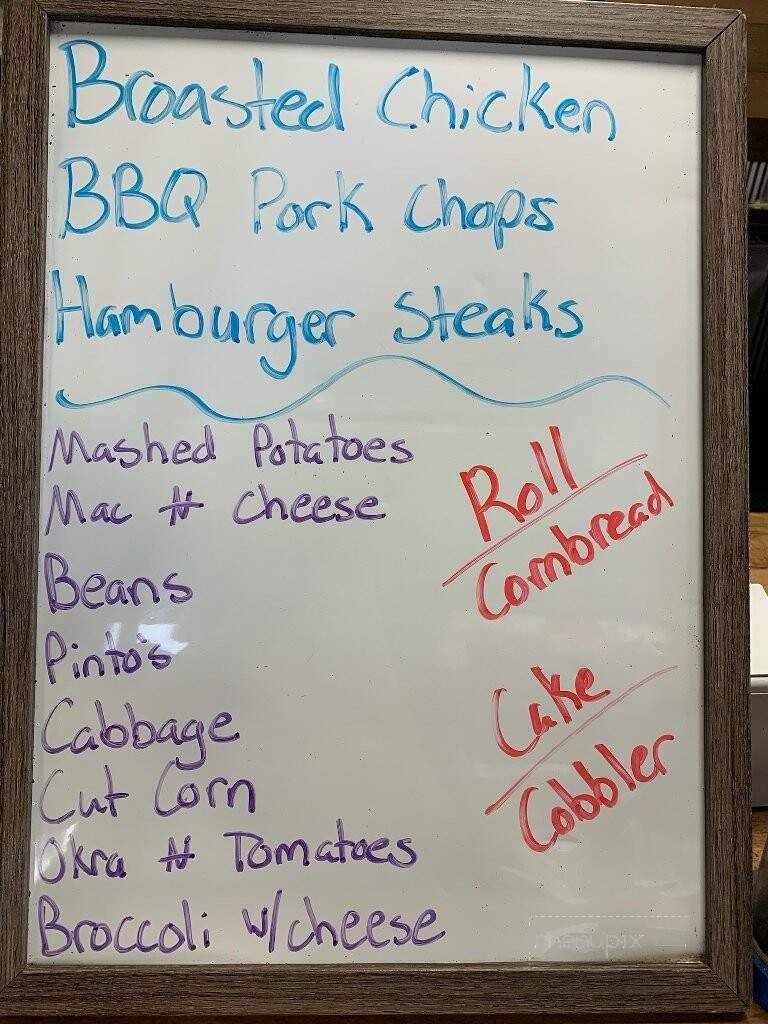 Broasted Chicken
BBQ Pork Chops
Hamburger Steaks
Mashed Potatoes
Mac N Cheese
Beans
Pinto's
Cabbage
Cut Corn
Okra N Tomatoes
Broccoli w/cheese
Roll
Cornbread
Cake
Cobbler
menupix